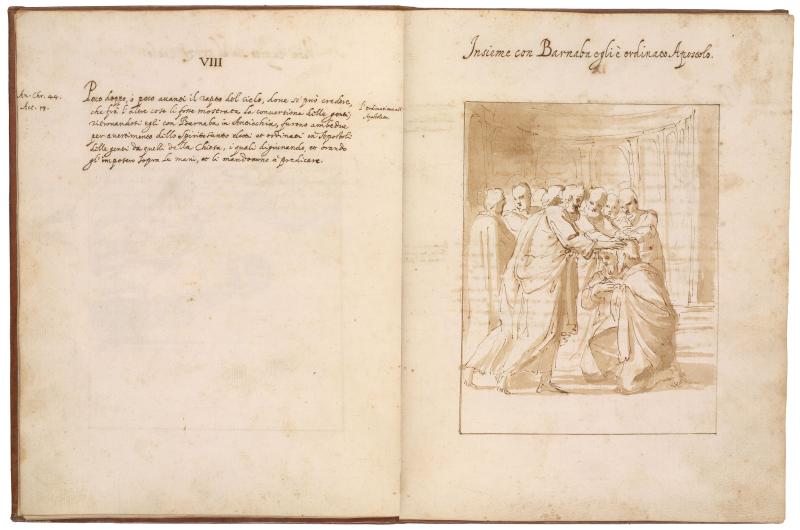 VIII
An. Chr. 44.
Act. 13.
Poco dopoo, ò poco auanti il rapto del cielo, doue si può credere,
che frà l'altre cose li fosse mostrata la conuersione delle genti;
ritrouandosi egli con Barnaba in Antiochia, furono ambedue
per auertimento dello Spirito santo eletti et ordinati in Apostoli
delle genti da quelli de la Chiesa, i quali digiunando, et orando
gli imposero sopra le mani, et li mandorono à predicare.
Insieme con Barnaba egli è ordinato Apostolo.